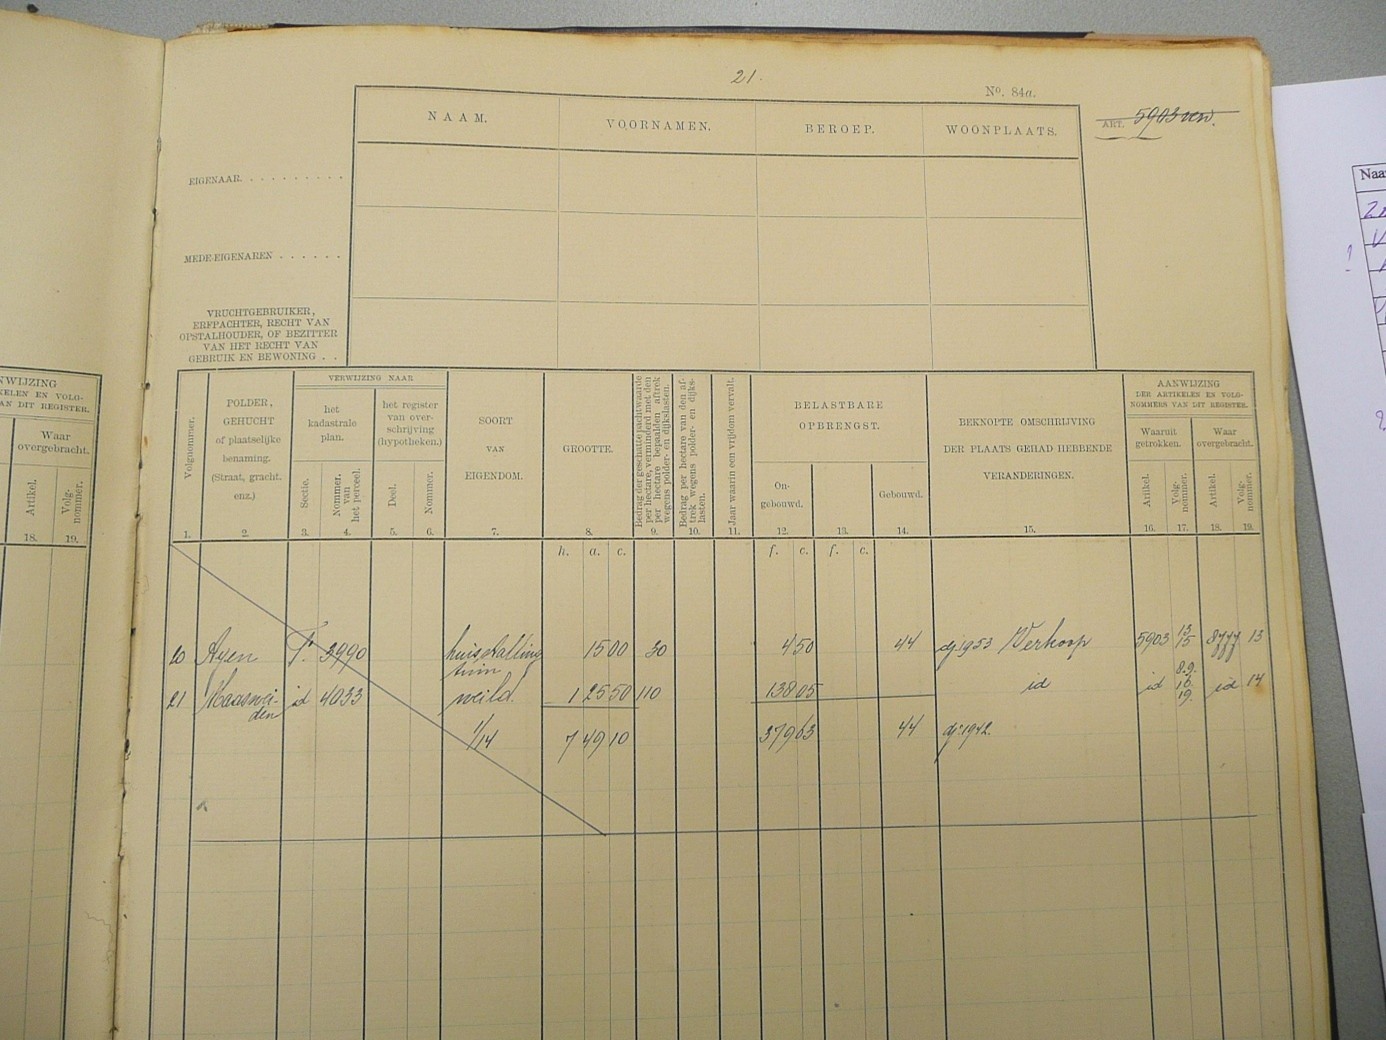 21.
No. 84a.
ART. 5903 verv.
NAAM. VOORNAMEN. BEROEP. WOONPLAATS.
EIGENAAR. . . . . . . . . .
MEDE-EIGENAREN . . . . . .
VRUCHTGEBRUIKER,
ERFPACHTER, RECHT VAN
OPSTALHOUDER, OF BEZITTER
VAN HET RECHT VAN
GEBRUIK EN BEWONING . .
Volgnommer.
POLDER,
GEHUCHT
of plaatselijke
benaming.
(Straat, gracht.
enz.)
VERWIJZING NAAR
het
kadastrale
plan.
Sectie.
Nommer.
van
het perceel.
het register
van over-
schrijving
(hypotheken.)
Deel.
Nommer.
SOORT
VAN
EIGENDOM.
GROOTTE.
Bedrag der geschatte pachtwaarde
per hectare, verminderd met den
per hectare bepaalden aftrek
wegens polder- en dijkslasten.
Bedrag per hectare van den af-
trek wegens polder- en dijks-
lasten.
Jaar waarin een vrijdom vervalt.
BELASTBARE
OPBRENGST.
On-
gebouwd.
Gebouwd.
BEKNOPTE OMSCHRIJVING
DER PLAATS GEHAD HEBBENDE
VERANDERINGEN.
AANWIJZING
DER ARTIKELEN EN VOLG-
NOMMERS VAN DIT REGISTER.
Waaruit
getrokken.
Waar
overgebracht.
Artikel.
Volg-
nommer.
Artikel.
Volg-
nommer.
1. 2. 3. 4. 5. 6. 7. 8. 9. 10. 11. 12. 13. 14. 15. 16. 17. 18. 19.
h. a. c. f. c. f. c.
20 Ayen F. 3990 huis stalling 15 00 30 4 50 44 dj 1953 Verkoop 5903 13 15 8777 13
tuin
21 Maaswei- id 4033 weild. 1 25 50 110 138 05 id id 8.9. 18. 19. id 14
den
1/14 7 49 10 379 63 44 dj. 1942.
NWIJZING
KELEN EN VOLG-
AN DIT REGISTER.
Waar
overgebracht.
Artikel.
Volg-
nommer.
18. 19.
Naa